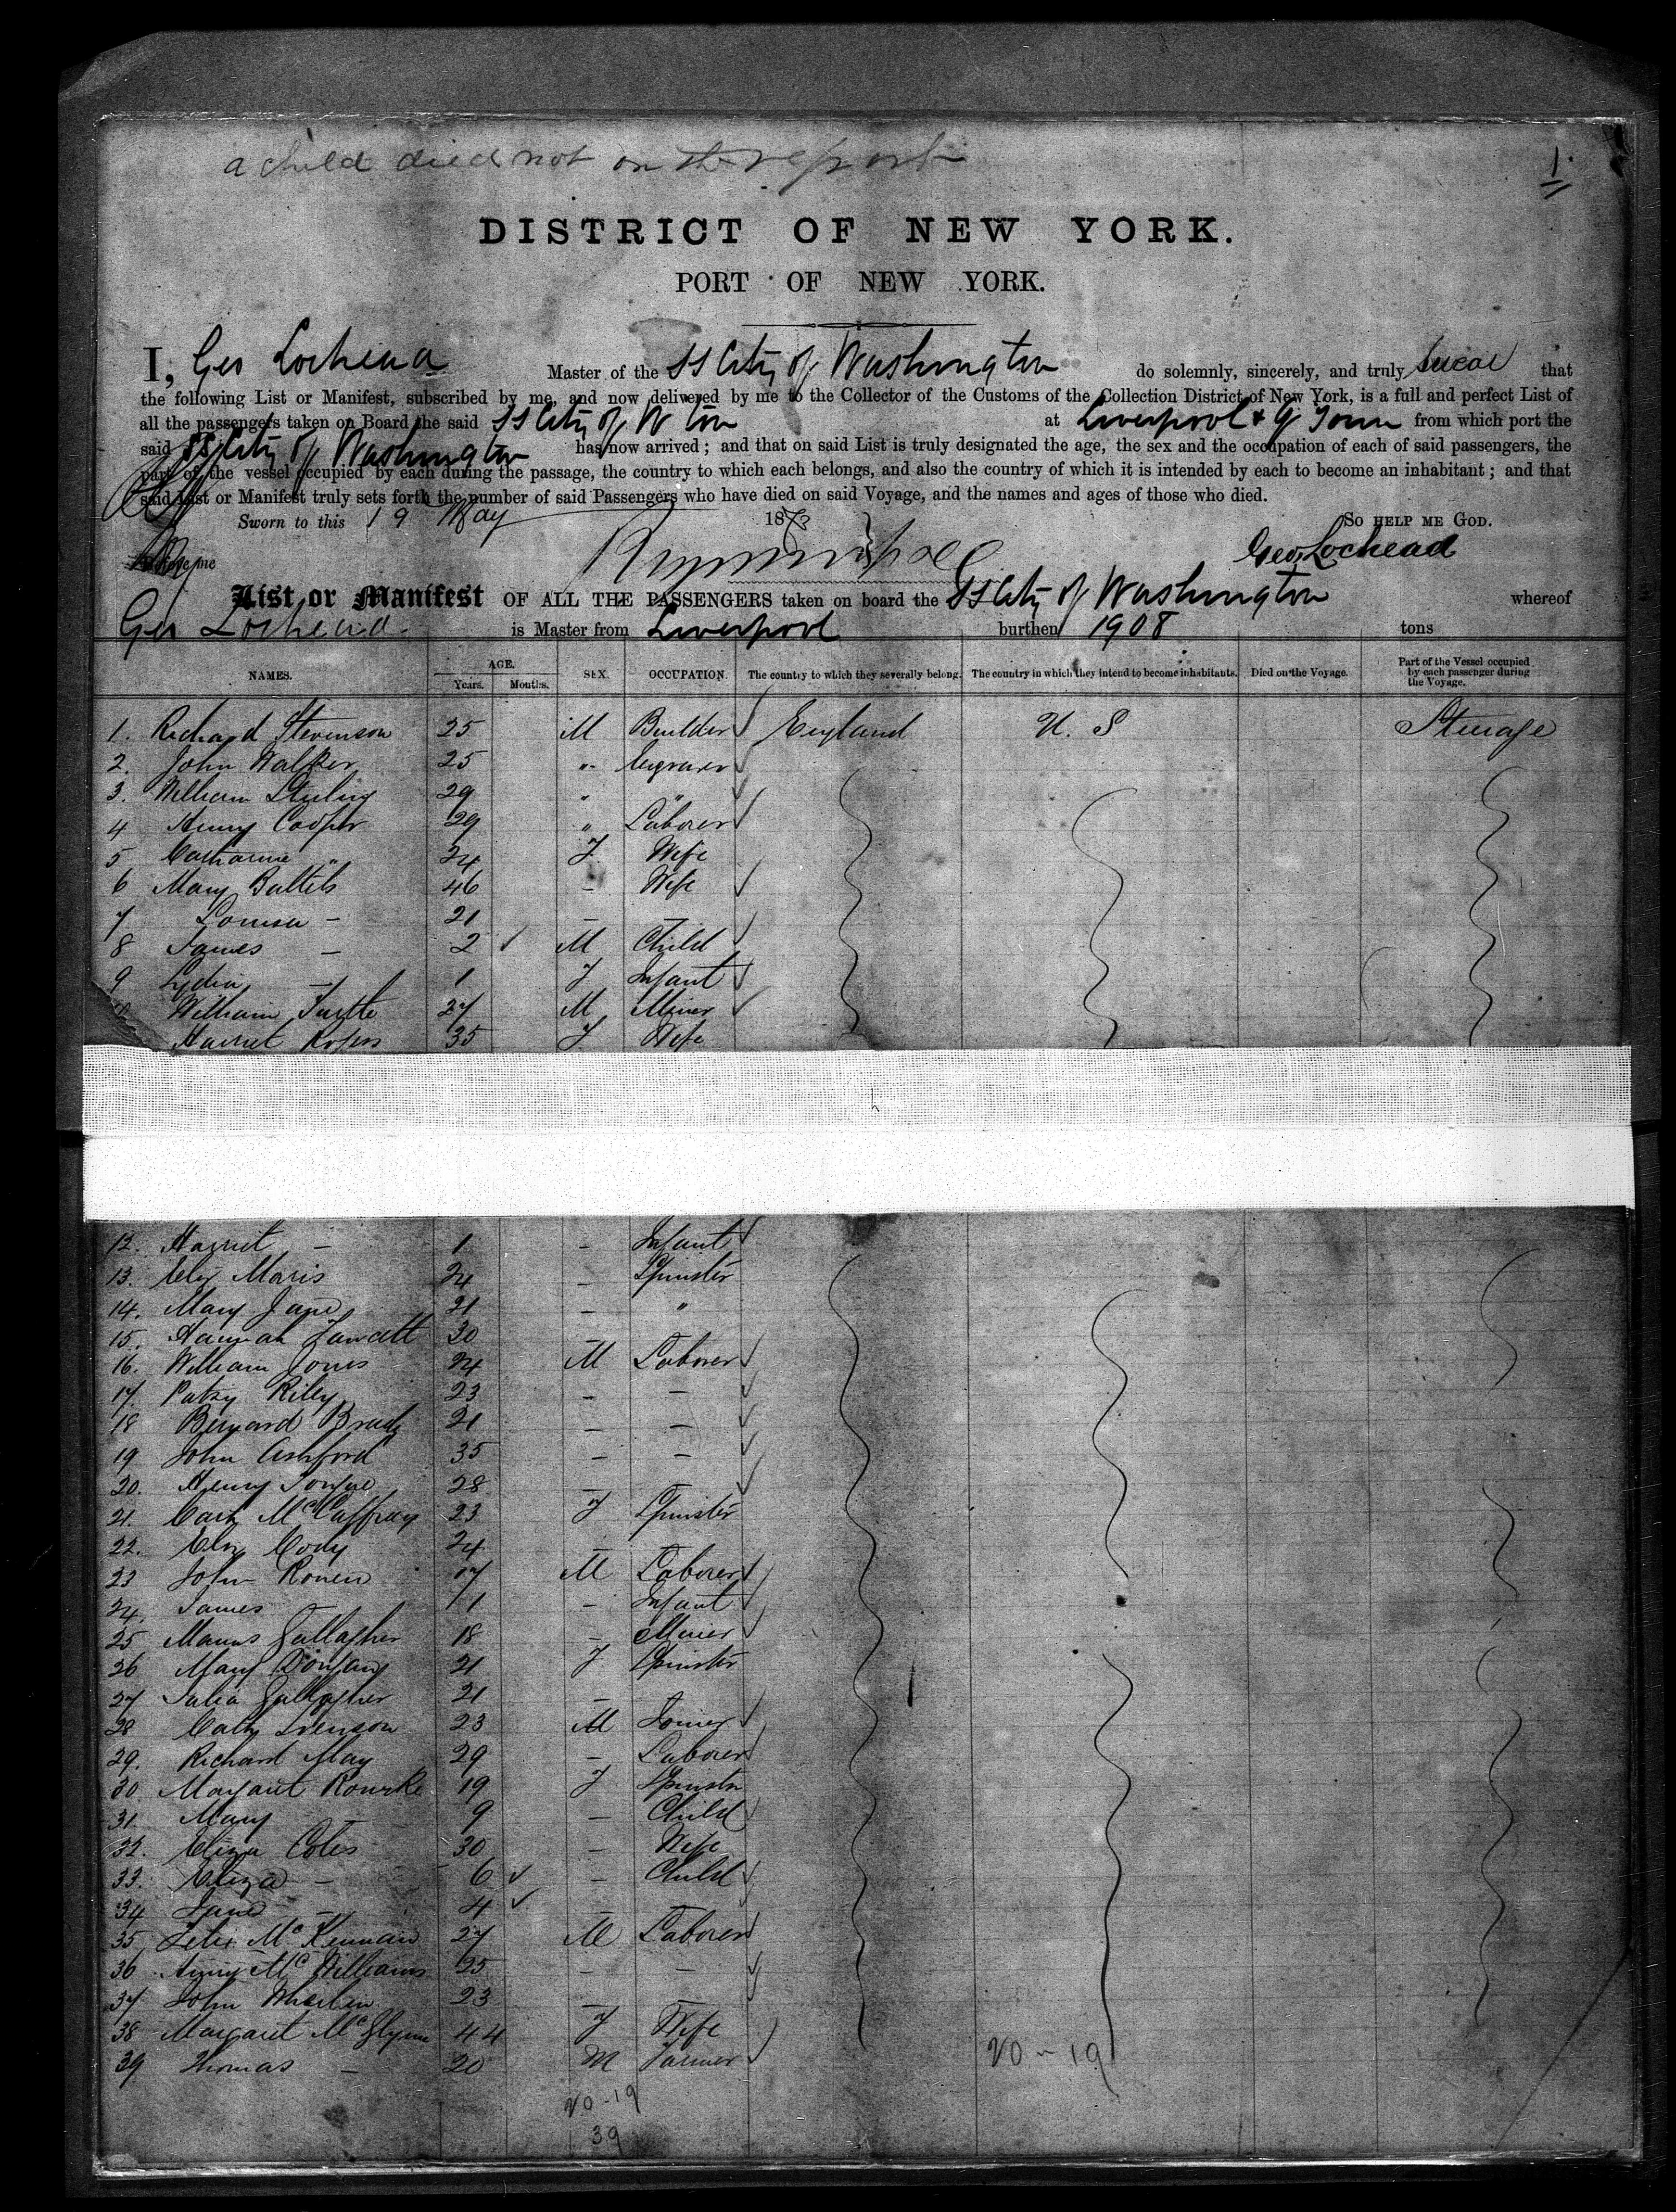 a child died not on the report
1
DISTRICT OF NEW YORK.
PORT OF NEW YORK.
I, Geo Lochead Master of the SS City of Washington do solemnly, sincerely, and truly swear that
the following List or Manifest, subscribed by me, and now delivered by me to the Collector of the Customs of the Collection District of New York, is a full and perfect List of
all the passengers taken on Board the said SS City of W ton at Liverpool & Q Town from which port the
said SS City of Washington has now arrived; and that on said List is truly designated the age, the sex and the occupation of each of said passengers, the
part of the vessel occupied by each during the passage, the country to which each belongs, and also the country of which it is intended by each to become an inhabitant; and that
said List or Manifest truly sets forth the number of said Passengers who have died on said Voyage, and the names and ages of those who died.
Sworn to this 19 May 187 So HELP ME GOD.
Before me Geo. Lochead
List or Manifest OF ALL THE PASSENGERS taken on board the SS City of Washington whereof
Geo Lochead. is Master from Liverpool burthen 1908 tons
NAMES. AGE. Years. Months. SEX. OCCUPATION. The country to which they severally belong. The country in which they intend to become inhabitants. Died on the Voyage. Part of the Vessel occupied by each passenger during the Voyage.
1. Richard Stevenson 25 M Builder England U. S Steerage
2. John Walker 25 " Engraver
3. William Sterling 29 " "
4 Henry Cooper 29 " Laborer
5 Catharine " 24 F Wife
6 Mary 46 - Wife
7 Louisa - 21 - -
8 James - 2 M Child
9 Lydia - 1 F Infant
William 27 M Miner
Harriet Rogers 35 F Wife
12. Harriet - 1 - Infant
13. Eliz Maris 24 - Spinster
14. Mary Jane 21 - "
15. Hannah Fawcett 30
16. William Jones 24 M Laborer
17. Patky Riley 23 - -
18 Bernard Brady 21 - -
19 John Ashford 35 - -
20. Henry 28 -
21. Cath McCaffray 23 F Spinster
22. Eliz Cody 24 -
23 John Ronen 17 M Laborer
24. James - 11 - Infant
25 Manus Gallagher 18 - Miner
26 Mary 21 F Spinster
27 Julia Gallagher 21 -
28 23 M Joiner
29. Richard May 29 - Laborer
30 Margaret Rourke 19 F Spinster
31 Mary - 9 - Child
32. Eliza Coles 30 - Wife
33. Eliza - 6 - Child
34 Jane - 4 - -
35 Felix McKennan 27 M Laborer
36 McWilliams 25 - -
37 John 23 -
38 Margaret McGlynn 44 F Wife
39 Thomas - 20 M Farmer
20 - 19
20 - 19
39